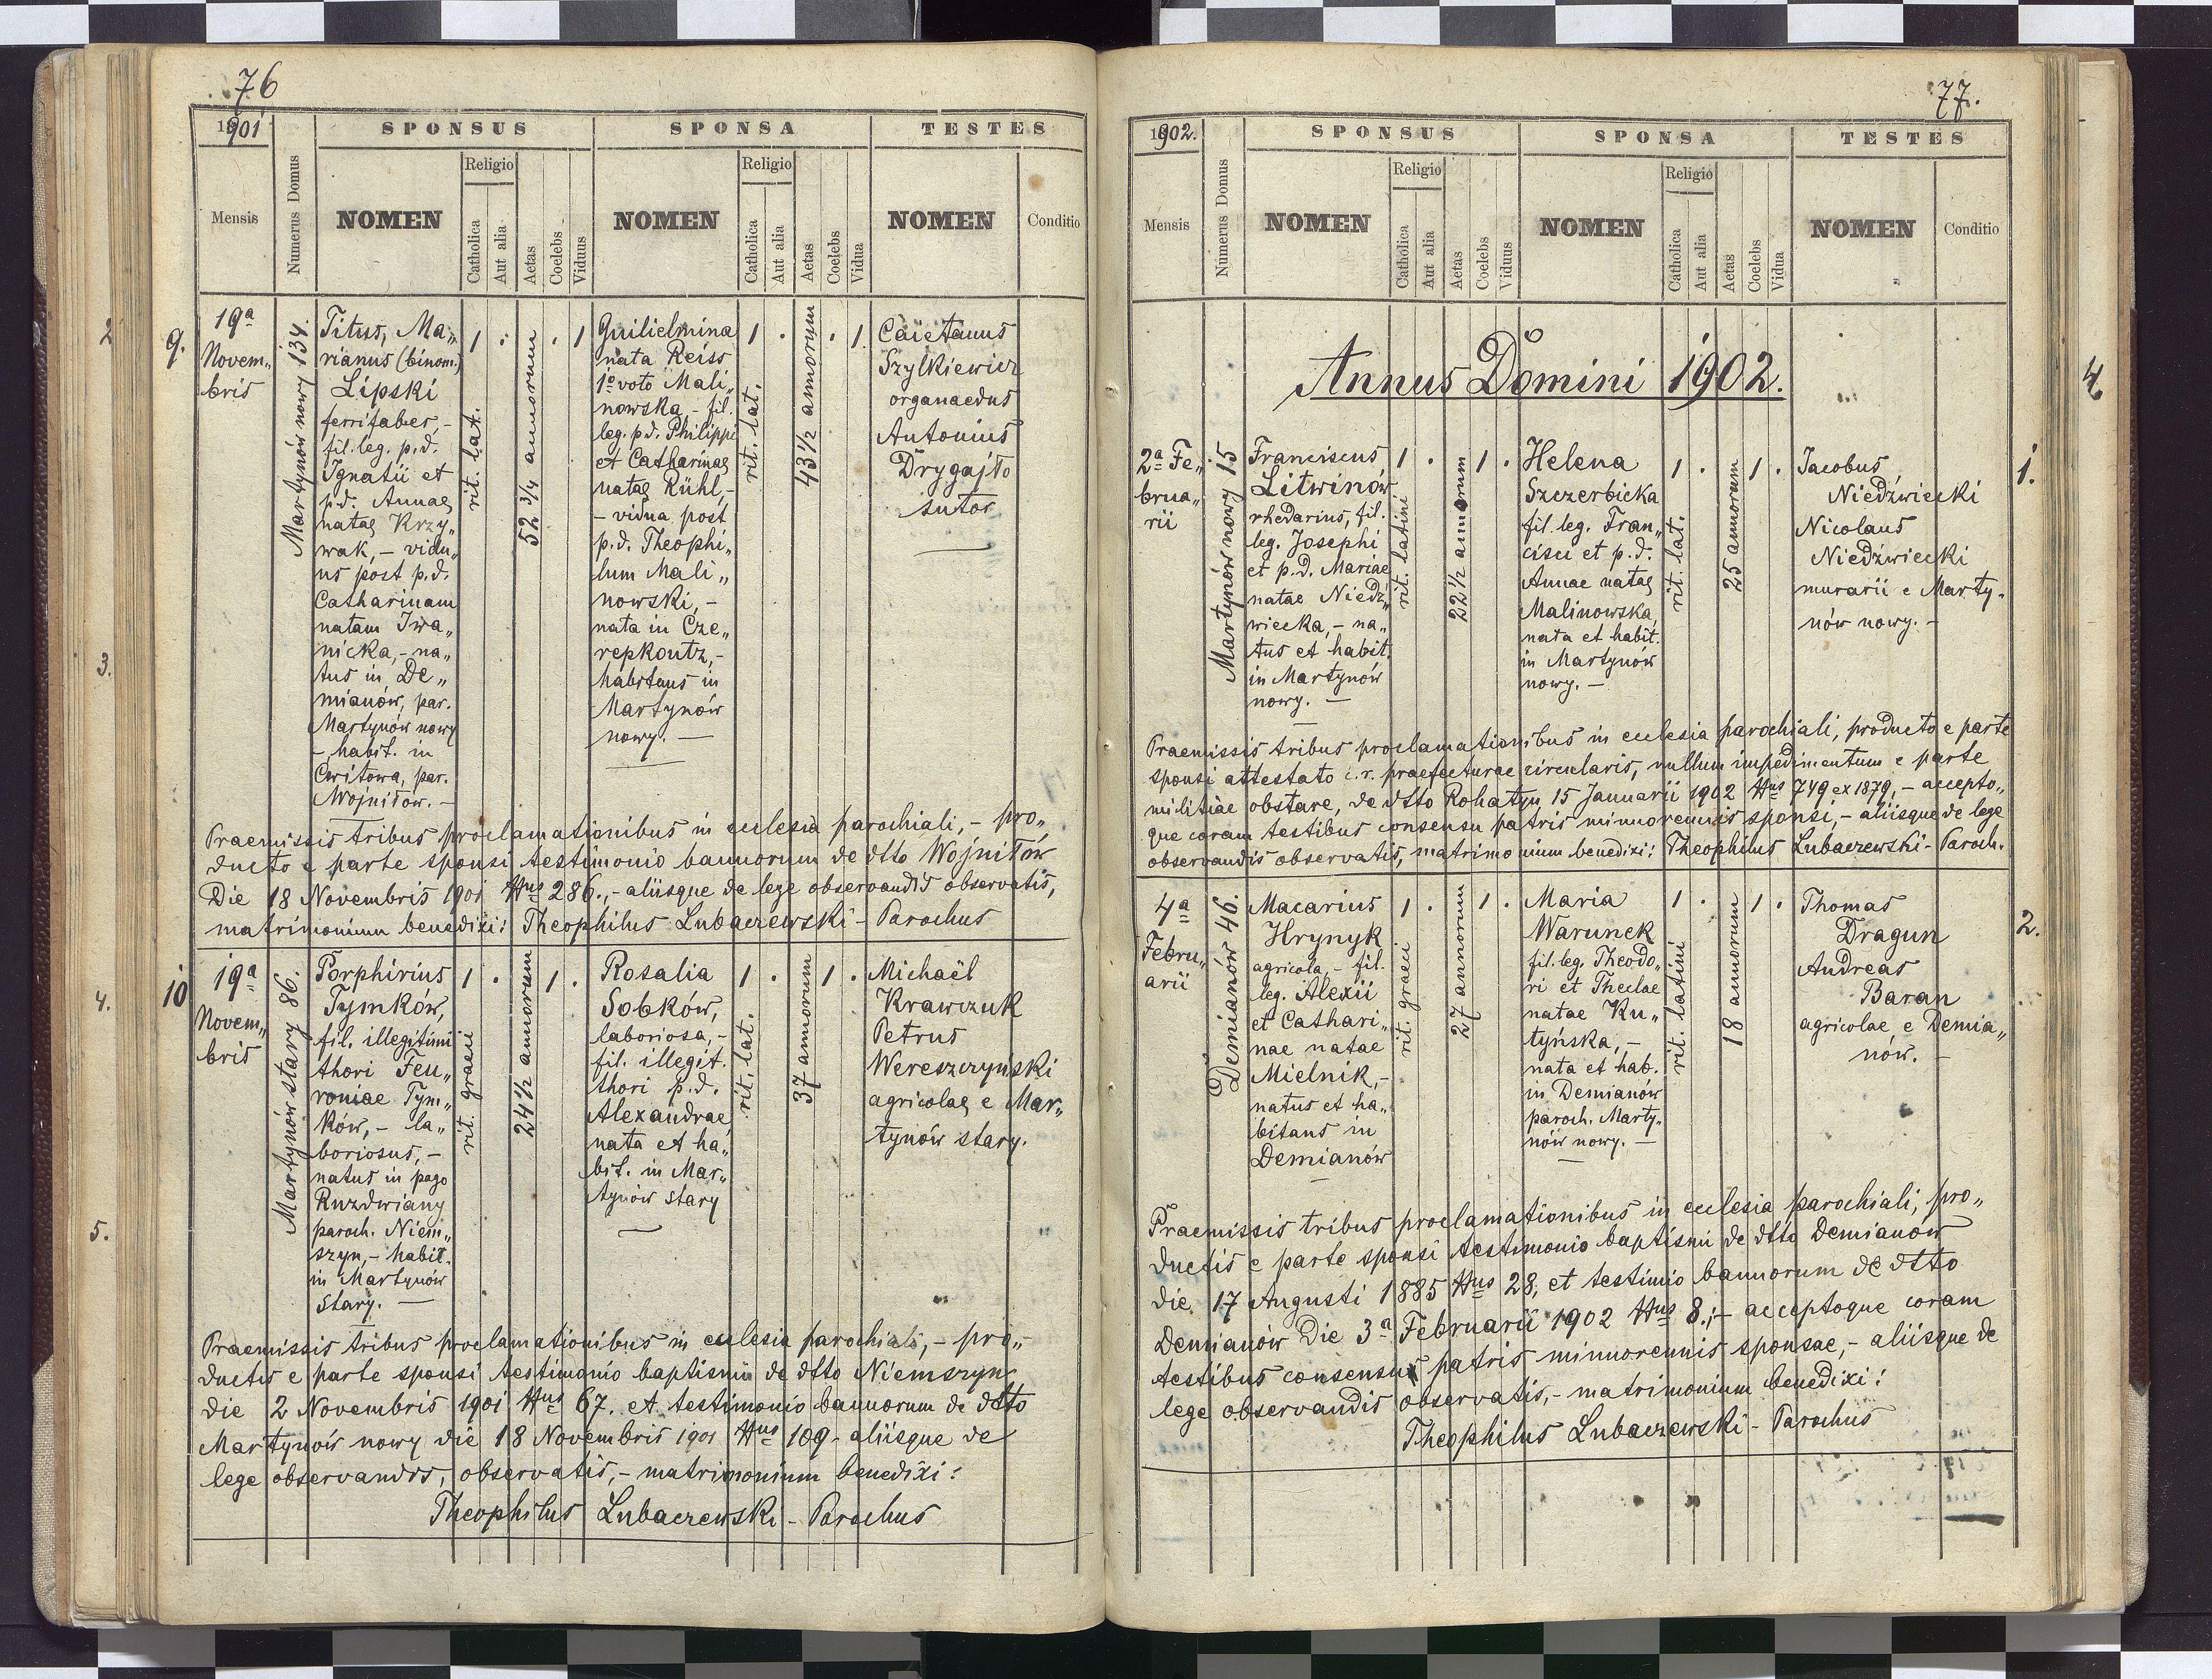 76
1901
SPONSUS SPONSA TESTES
Mensis Numerus Domus NOMEN Religio Catholica Aut alia Aetas Coelebs Viduus NOMEN Religio Catholica Aut alia Aetas Coelebs Vidua NOMEN Conditio
9.
19a
Novem„
bris
Martynów nowy 134.
Titus, Ma„
rianus (binom.)
Lipski
ferrifaber,-
fil. leg. p.d.
Ignatii et
p.d. Annae
natae Krzy„
wak,- vidu„
us post p.d.
Catharinam
natam Iwa„
nicka,- na„
tus in De„
mianów, par.
Martynów nowy
- habit. in
Cwitowa, par.
Wojniłow.-
1 . . 1
rit. lat.
52 3/4 annorum
Guilielmina
nata Reiss
1o voto Mali„
nowska,- fil.
leg. p.d. Philippi
et Catharinae
natae Rühl,-
- vidua post
p.d. Theophi„
lum Mali„
nowski,-
nata in Cze„
repkoutz,-
habitans in
Martynów
nowy.-
1 . . 1.
rit. lat.
43 1/2 annorum
Caietanus
Szylkiewicz
organaedus
Antonius
Drygajło
sutor
Praemissis tribus proclamationibus in ecclesia parochiali,- pro„
ducto e parte sponsi testimonio bannorum de dtto Wojniłów
Die 18 Novembris 1901 Nus 286.,- aliisque de lege observandis observatis,
matrimonium benedixi: Theophilus Lubaczewski - Parochus
10
19a
Novem„
bris
Martynów stary 86.
Porphirius
Tymków,
fil. illegitimi
thori Feu„
roniae Tym„
ków,- la„
boriosus,-
natus in pago
Ruzdwiany
paroch. Niem„
szyn,- habit.
in Martynów
stary.-
1 . 1 .
rit. graeci
24 1/2 annorum
Rosalia
Sobków,
laboriosa,-
fil. illegit.
thori p.d.
Alexandrae
nata et ha„
bit. in Mar„
tynów stary
1 . 1 .
rit. lat.
37 annorum
Michaël
Krawczuk
Petrus
Wereszczyński
agricolae e Mar„
tynów stary.
Praemissis tribus proclamationibus in ecclesia parochiali,- pro„
ductis e parte sponsi testimonio baptismi de dtto Niemszyn
die 2 Novembris 1901 Nus 67. et testimonio bannorum de dtto
Martynów nowy die 18 Novembris 1901 Nus 109- aliisque de
lege observandis, observatis,- matrimonium benedixi:
Theophilus Lubaczewski - Parochus
2
3.
4.
5.
77.
1902.
SPONSUS SPONSA TESTES
Mensis Numerus Domus NOMEN Religio Catholica Aut alia Aetas Coelebs Viduus NOMEN Religio Catholica Aut alia Aetas Coelebs Vidua NOMEN Conditio
Annus Domini 1902.
2a Fe„
brua„
rii
Martynów nowy 15
Franciscus
Litwinów
rhedarius, fil.
leg. Josephi
et p.d. Mariae
natae Niedź„
wiecka,- na„
tus et habit.
in Martynów
nowy.-
1 . 1 .
rit. latini
22 1/2 annorum
Helena
Szczerbicka
fil. leg. Fran„
cisci et p.d.
Annae natae
Malinowska,
nata et habit.
in Martynów
nowy.-
1 . 1 .
rit. lat.
25 annorum
Jacobus
Niedźwiecki
Nicolaus
Niedźwiecki
murarii e Marty„
nów nowy.-
1.
Praemissis tribus proclamationibus in ecclesia parochiali, producto e parte
sponsi attestato c.r. praefecturae circularis, nullum impedimentum e parte
militiae obstare, de dtto Rohatyn 15 Januarii 1902 Nus 749 ex 1879,- accepto„
que coram testibus consensu patris minorennis sponsi,- aliisque de lege
observandis observatis, matrimonium benedixi: Theophilus Lubaczewski - Paroch.
4a
Febru„
arii
Demianów 46.
Macarius
Hrynyk
agricola,- fil.
leg. Alexii
et Cathari„
nae natae
Mielnik,-
natus et ha„
bitans in
Demianów
1 . 1 .
rit. graeci
27 annorum
Maria
Warunek
fil. leg. Theodo„
ri et Theclae
natae Ku„
tyńska,-
nata et hab.
in Demianów
paroch. Marty„
nów nowy.-
1 . 1 .
rit. latini
18 annorum
Thomas
Dragun
Andreas
Baran
agricolae e Demia„
nów.-
2.
Praemissis tribus proclamationibus in ecclesia parochiali, pro„
ductis e parte sponsi testimonio baptismi de dtto Demianów
die 17 Augusti 1885 Nus 28, et testimio bannorum de dtto
Demianów Die 3a Februarii 1902 Nus 8.;- acceptoque coram
testibus consensu patris minorennis sponsae,- aliisque de
lege observandis observatis,- matrimonium benedixi:
Theophilus Lubaczewski - Parochus
4